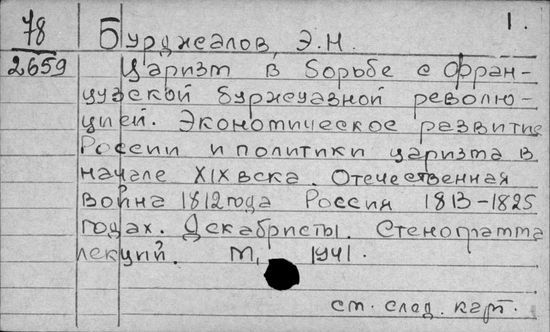 78 Бурджалов, Э.Н. 1.
2659 Царизм в борьбе с фран-
цузской буржуазной револю-
цией. Экономическое развитие
России и политики царизма в
начале XIX века. Отечественная
война 1812 года Россия 1813-1825
годах. Декабристы. Стенограмма
лекций. М., 1941.
см. след. карт.